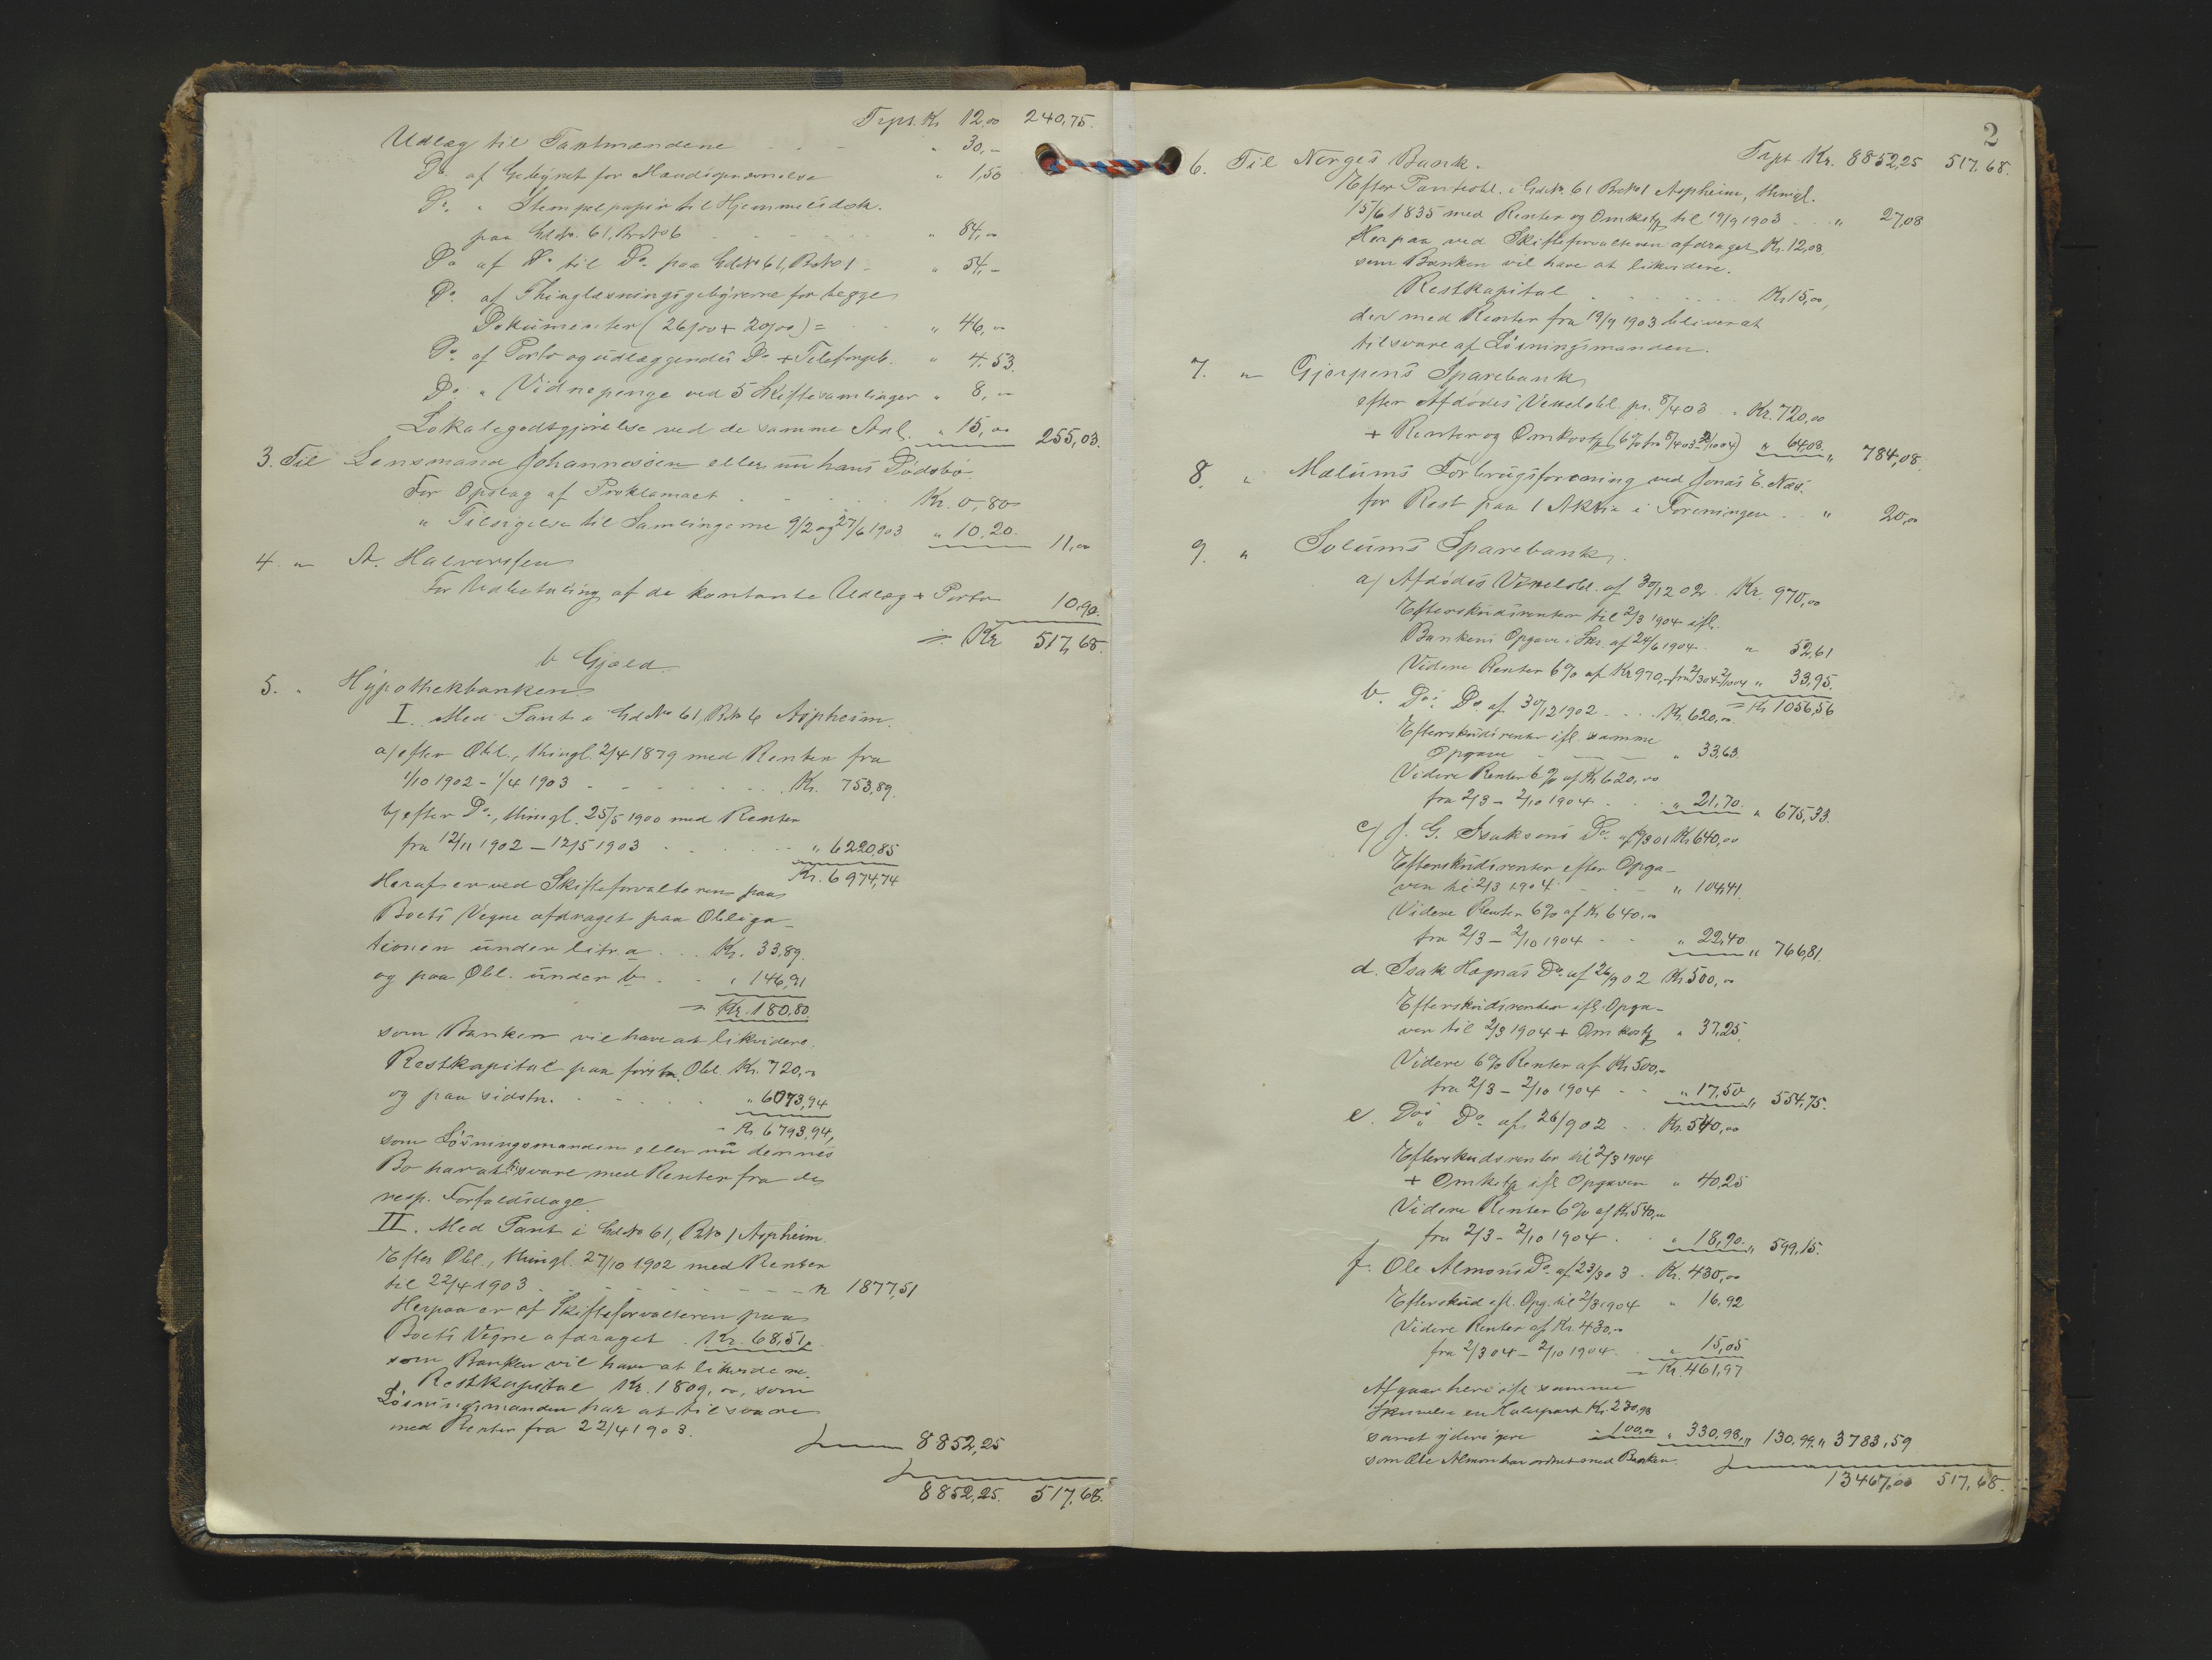 Trpt. Kr. 12,00 240,75.
Udlæg til Taxtmændene " 30,-
Do. af Gebyret for Mandsopnævnelse " 1,50
Do. " Stempelpapir til Hjemmelsdok.
paa Gd. No. 61, Br. No 6 " 84,00
Do af Do til Do paa Gd No 61, B No 1 " 54,-
Do. af Thinglæsningsgebyrerne for begge
Dokumenter (26,00 + 20,00) = " 46,00
Do. af Porto og udlæggendes Do + Telefongeb. " 4,53.
Do. " Vidnepenge ved 5 Skiftesamlinger " 8,-
Lokalegodtgjørelse ved de samme Anl. " 15,00 255,03.
3. Til Lensmand Johannessen eller nu hans Dødsbo.
For Opslag af Proklamaet Kr. 0,80
" Tilsigelse til Samlingerne 9/2 og 27/6 1903 " 10,20. 11,00
4. " A. Halvorsen
For Udbetaling af de kontante Udlæg + Porto 10,90.
= Kr 517,68.
b Gjæld.
5. " Hypothekbanken
I. Med Pant i Gd No 61, B No 6 Aspheim.
a/ efter Obl., thingl. 2/4 1879 med Renter fra
1/10 1902 - 1/4 1903 Kr. 753,89.
b/ efter Do., thingl. 25/5 1900 med Renter
fra 12/11 1902 - 12/5 1903 " 6220,85
Kr. 6974,74
Heraf er ved Skifteforvalteren paa
Boets Vegne afdraget paa Obliga-
tionen under litr. a Kr. 33,89.
og paa Obl. under b " 146,91
= Kr. 180,80.
som Banken vil have at likvidere.
Restkapital paa førstn. Obl. Kr. 720,00
og paa sidstn. " 6073,94
= Kr 6793,94,
som Løsningsmanden eller nu dennes
Bo har at tilsvare med Renter fra de
resp. Forfaldsdage.
II. Med Pant i Gd No 61, B No 1 Aspheim.
Efter Obl., thingl. 27/10 1902 med Renter
til 22/4 1903 " 1877,51
Herpaa er af Skifteforvalteren paa
Boets Vegne afdraget Kr. 68,51,
som Banken vil have at likvidere.
Restkapital Kr. 1809,00, som
Løsningsmanden har at tilsvare
med Renter fra 22/4 1903.
8852,25
8852,25. 517,68.
2
Trpt. Kr. 8852,25 517,68.
6. Til Norges Bank.
Efter Pantobl. i Gd No. 61 B No 1 Aspheim, thingl.
15/6 1835 med Renter og Omkostg til 19/9 1903 " 27,08
Herpaa ved Skifteforvalteren afdraget Kr. 12,08.
som Banken vil have at likvidere.
Restkapital Kr 15,00,
der med Renter fra 19/9 1903 bliver at
tilsvare af Løsningsmanden.
7. " Gjerpens Sparebank,
efter Afdødes Vexelobl. pr. 8/4 03 Kr. 720,00
+ Renter og Omkostg (6% fra 8/4 03 - 2/10 04) " 64,08. " 784,08.
8. " Mælums Forbrugsforening ved Jonas E. Næs.
for Rest paa 1 Aktie i Foreningen " 20,00
9. " Solums Sparebank,
a/ Afdødes Vexelobl. af 30/12 02. Kr. 970,00
Efterskudsrenter til 2/3 1904 ifl.
Bankens Opgave i Skr. af 24/6 1904 " 52,61
Videre Renter 6% af Kr 970,- fra 2/3 04 - 2/10 04 " 33,95.
= Kr 1056,56
b. Do.s Do. af 30/12 1902 Kr. 620,00
Efterskudsrenter ifl. samme
Opgave " 33,63.
Videre Renter 6% af Kr 620,00
fra 2/3 - 2/10 1904 " 21,70. " 675,33.
c/ J. G. Isaksens Do. af 01 Kr 640,00
Efterskudsrenter efter Opga-
ven til 2/3 1904 " 104,41.
Videre Renter 6% af Kr 640,00
fra 2/3 - 2/10 1904 " 22,40. " 766,81.
d. Isak Hægnas Do. af 26/9 02 Kr 500,00
Efterskudsrenter ifl. Opga-
ven til 2/3 1904 + Omkostg " 37,25.
Videre 6% Renter af Kr 500,-
fra 2/3 - 2/10 1904 " 17,50. " 554,75.
e. Do.s Do. af 26/9 02 Kr. 540,00
Efterskudsrenter til 2/3 1904
+ Omkstg ifl. Opgaven " 40,25
Videre Renter 6% af Kr 540,00
fra 2/3 - 2/10 1904 " 18,90. " 599,15.
f. Ole Almons Do. af 23/3 03. Kr. 430,00
Efterskud ifl. Opg. til 2/3 1904 " 16,92
Videre Renter af Kr. 430,00
fra 2/3 04 - 2/10 1904 " 15,05
= Kr. 461,97
Afgaar heri ifl. samme
Skrivelse en Halvpart Kr. 230,98
samt yderligere " 100,00 " 330,98, " 130,99. " 3783,59
som Ole Almon har ordnet med Banken.
13467,00 517,68.